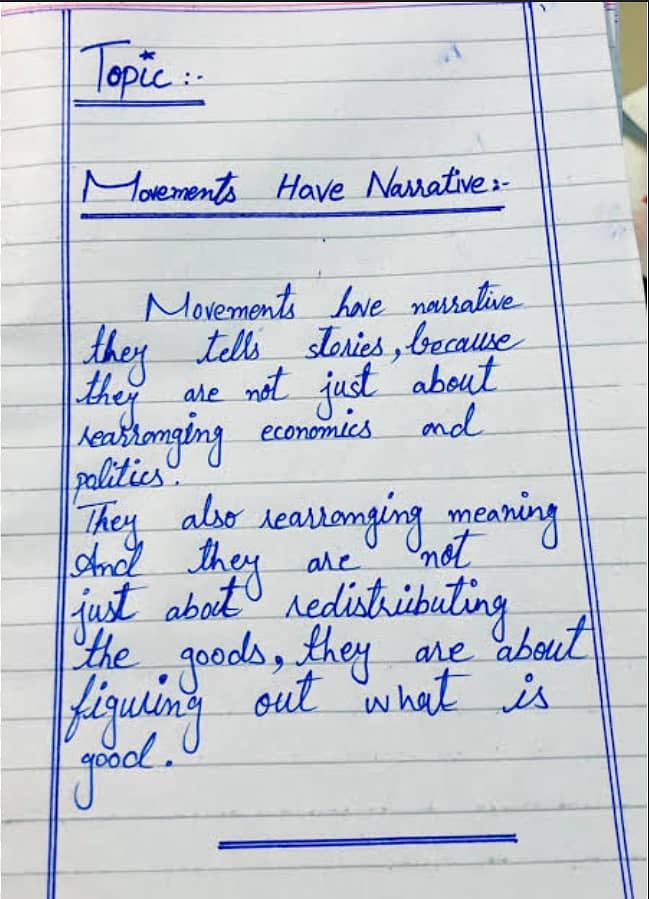 Topic :-
Movements Have Narrative :-
Movements have narrative
they tells stories, because
they are not just about
rearranging economics and
politics.
They also rearranging meaning
And they are not
just about redistributing
the goods, they are about
figuring out what is
good.